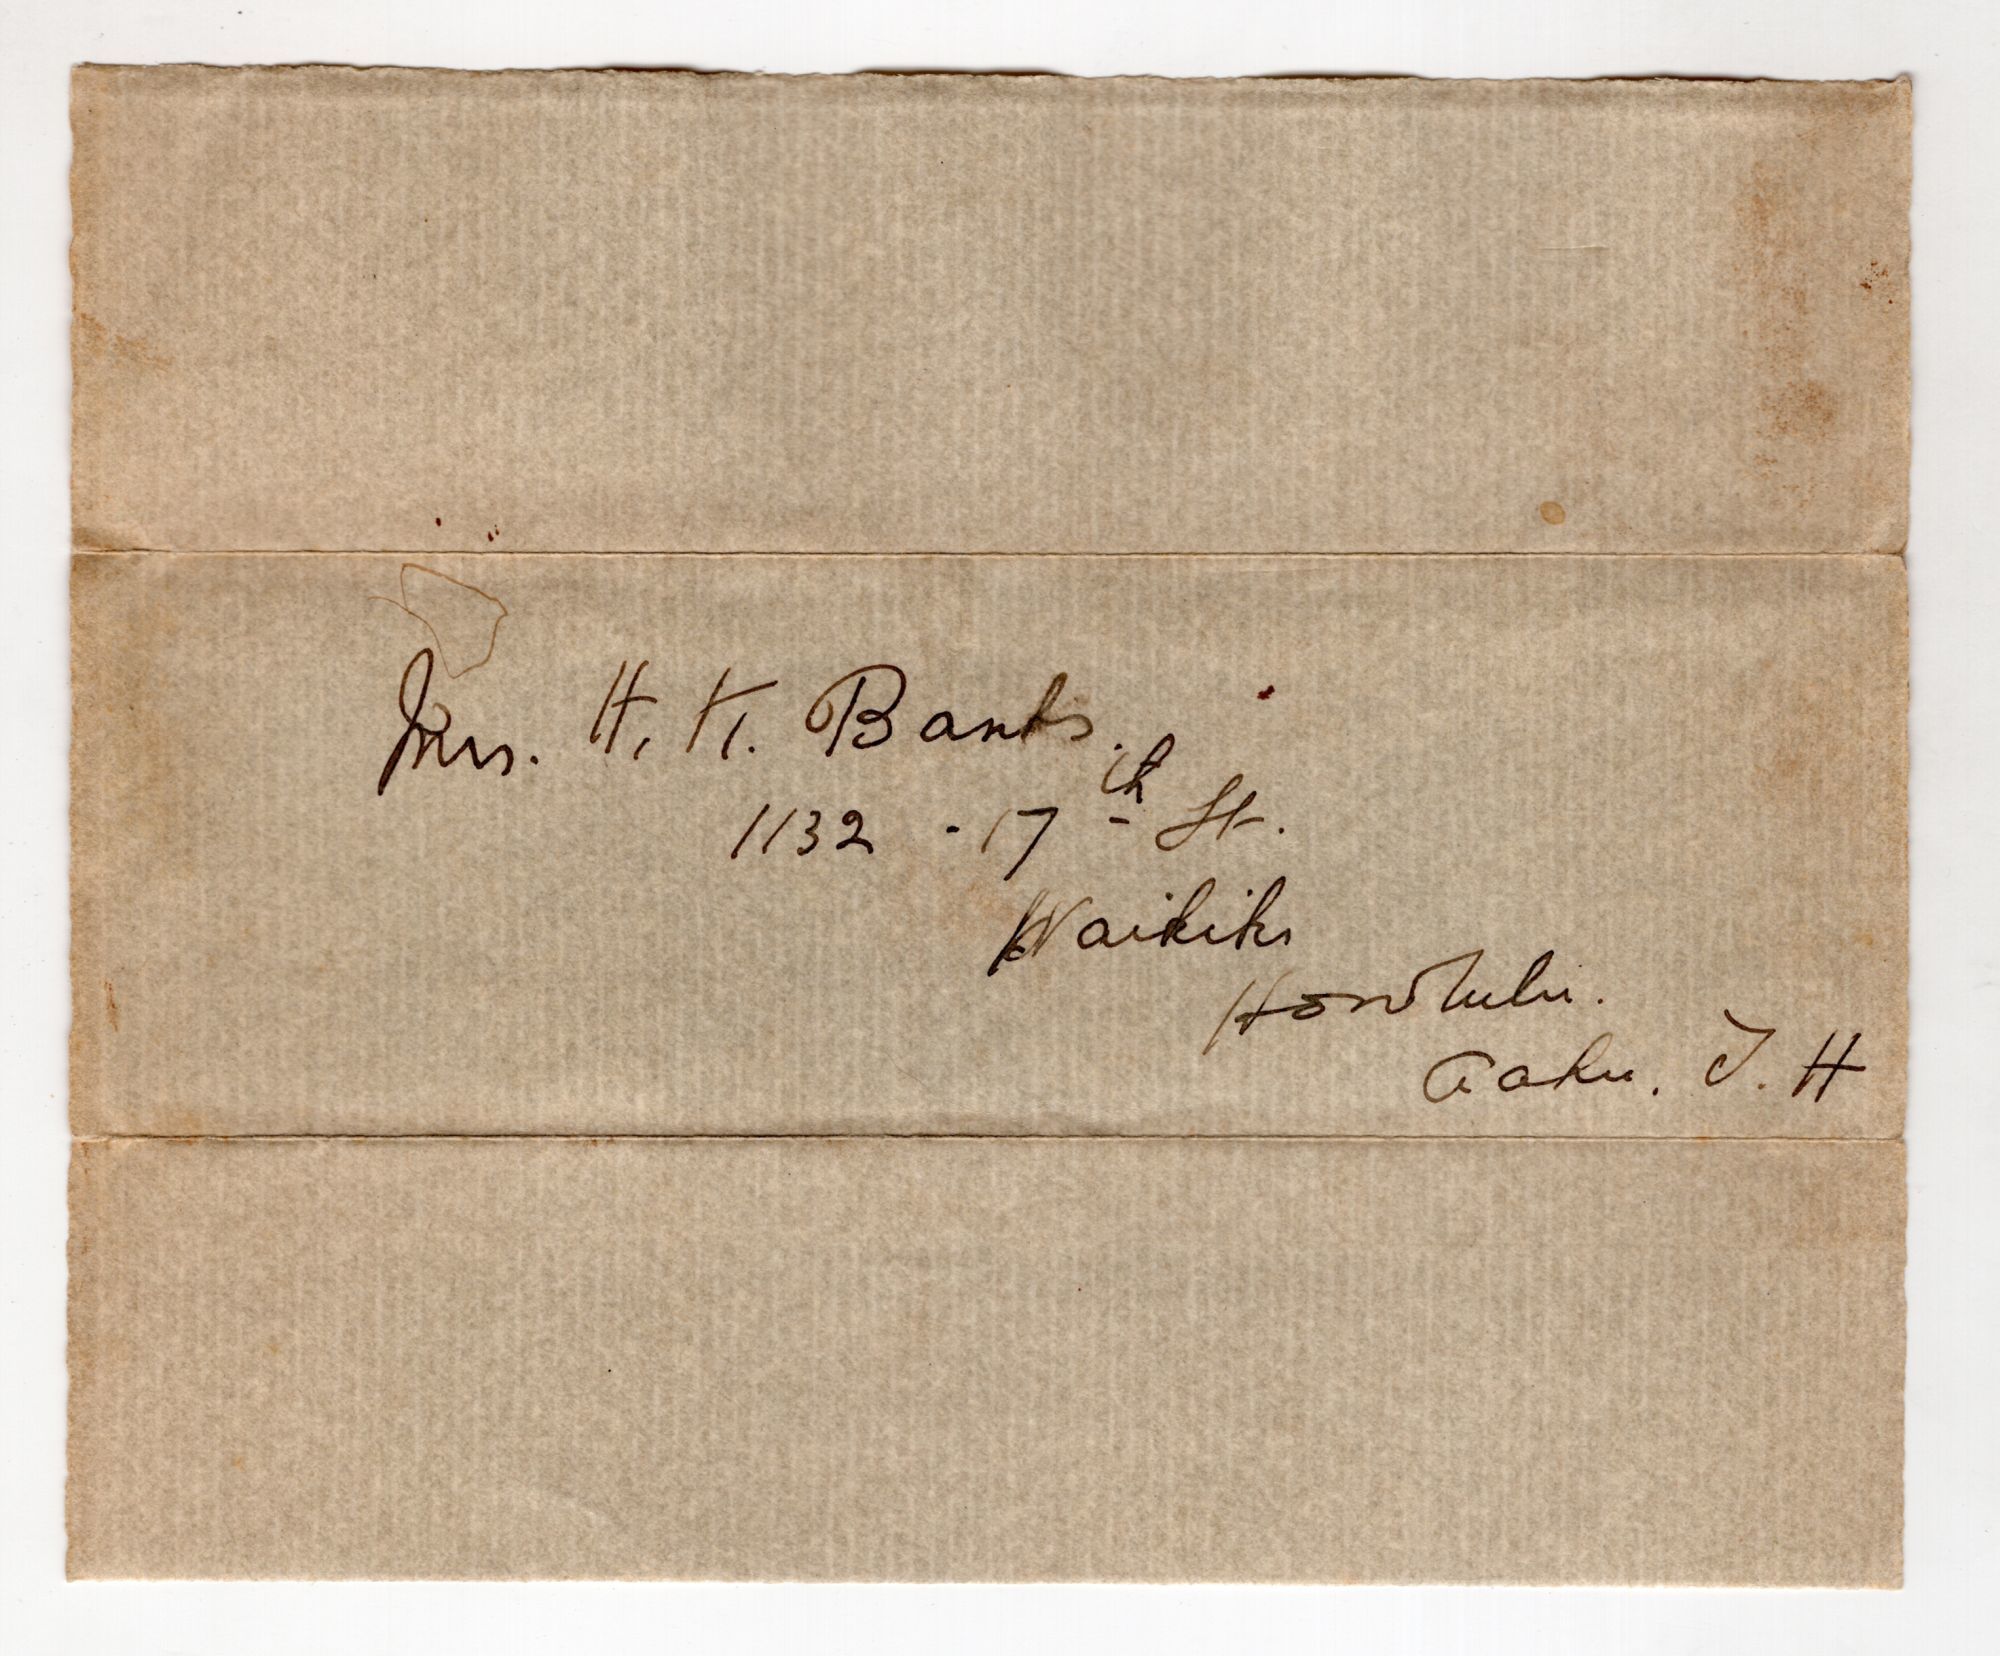 Mrs. H. K. Banks.
1132 - 17th St.
Waikiki
Honolulu.
Oahu. T. H